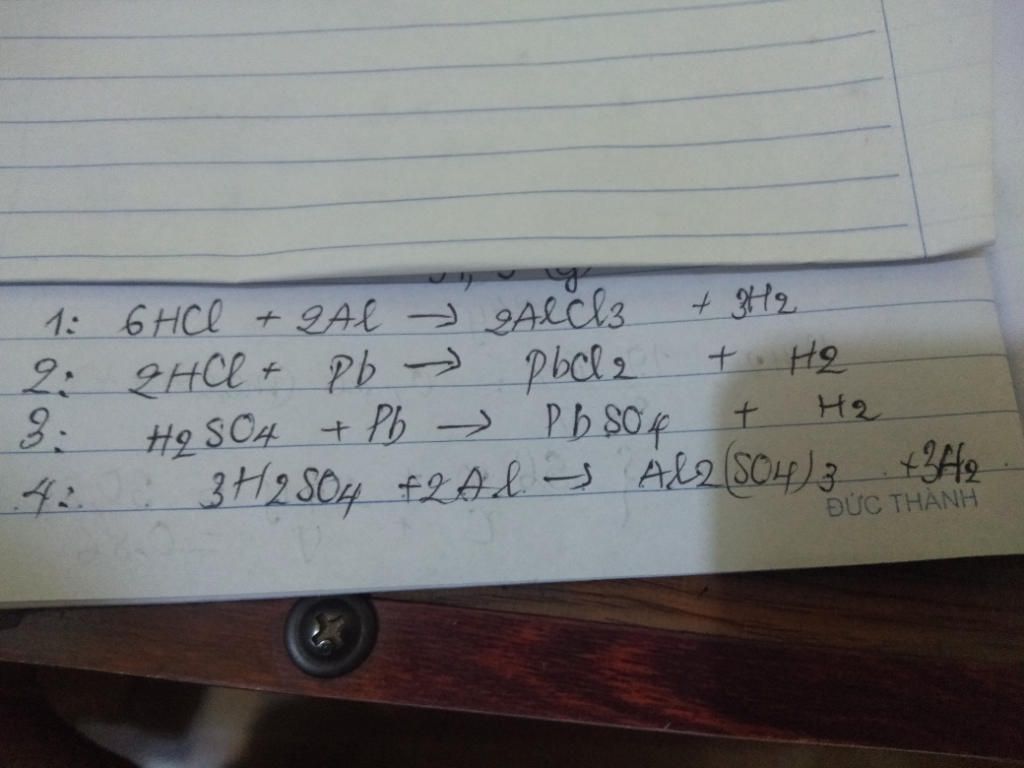 1: 6HCl + 2Al → 2AlCl3 + 3H2
2: 2HCl + Pb → PbCl2 + H2
3: H2SO4 + Pb → PbSO4 + H2
4: 3H2SO4 + 2Al → Al2(SO4)3 + 3H2
ĐỨC THÀNH